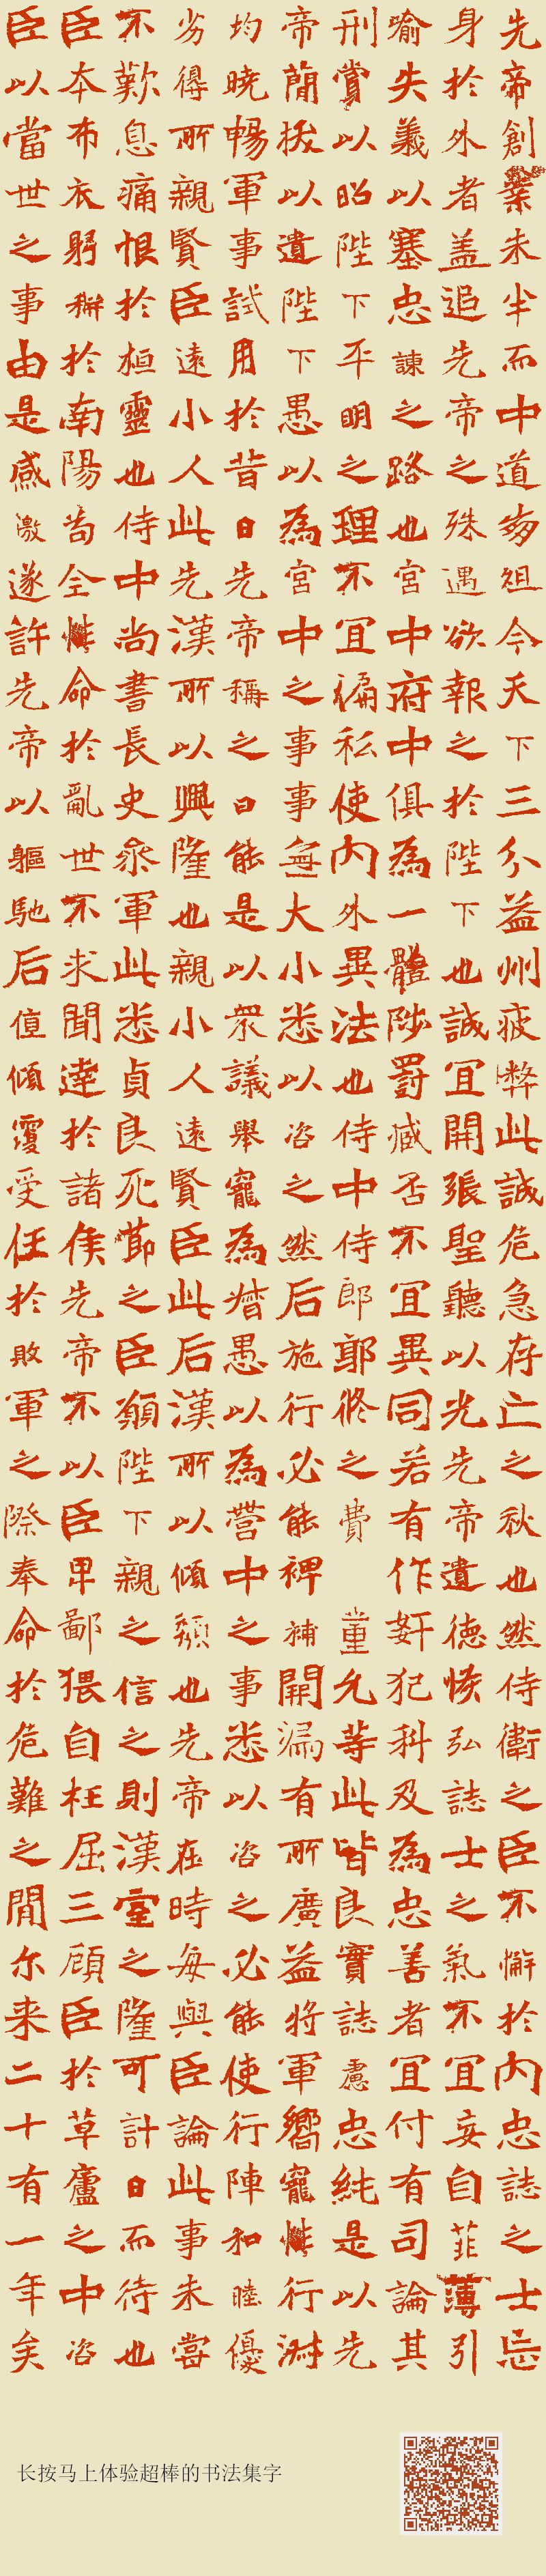 先帝創業未半而中道崩殂今天下三分益州疲弊此誠危急存亡之秋也然侍衛之臣不懈於內忠誌之士忘
身於外者盖追先帝之殊遇欲報之於陛下也誠宜開張聖聽以光先帝遺德恢弘誌士之氣不宜妄自菲薄引
喻失義以塞忠諫之路也宮中府中俱為一體陟罰臧否不宜異同若有作奸犯科及為忠善者宜付有司論其
刑賞以昭陛下平明之理不宜偏私使內外異法也侍中侍郎郭攸之費 董允等此皆良實誌慮忠純是以先
帝簡拔以遺陛下愚以為宮中之事事無大小悉以咨之然后施行必能裨補闕漏有所廣益將軍嚮寵性行淑
均曉暢軍事試用於昔日先帝稱之曰能是以眾議舉寵為督愚以為營中之事悉以咨之必能使行陣和睦優
劣得所親賢臣遠小人此先漢所以興隆也親小人遠賢臣此后漢所以傾頹也先帝在時每與臣論此事未嘗
不歎息痛恨於桓靈也侍中尚書長史參軍此悉貞良死節之臣願陛下親之信之則漢室之隆可計日而待也
臣本布衣躬耕於南陽苟全性命於亂世不求聞達於諸侯先帝不以臣卑鄙猥自枉屈三顧臣於草廬之中咨
臣以當世之事由是感激遂許先帝以軀馳后值傾覆受任於敗軍之際奉命於危難之間尔来二十有一年矣
长按马上体验超棒的书法集字